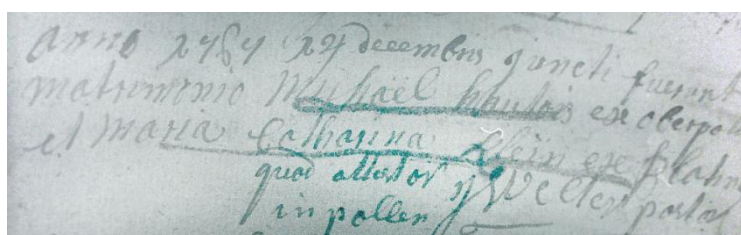 anno 1761 24 decembris juncti fuerunt
matrimonio Michaël hautois ex oberpa
et Maria Catharina Klein ex
quod attestor Welter pastor
in pollen